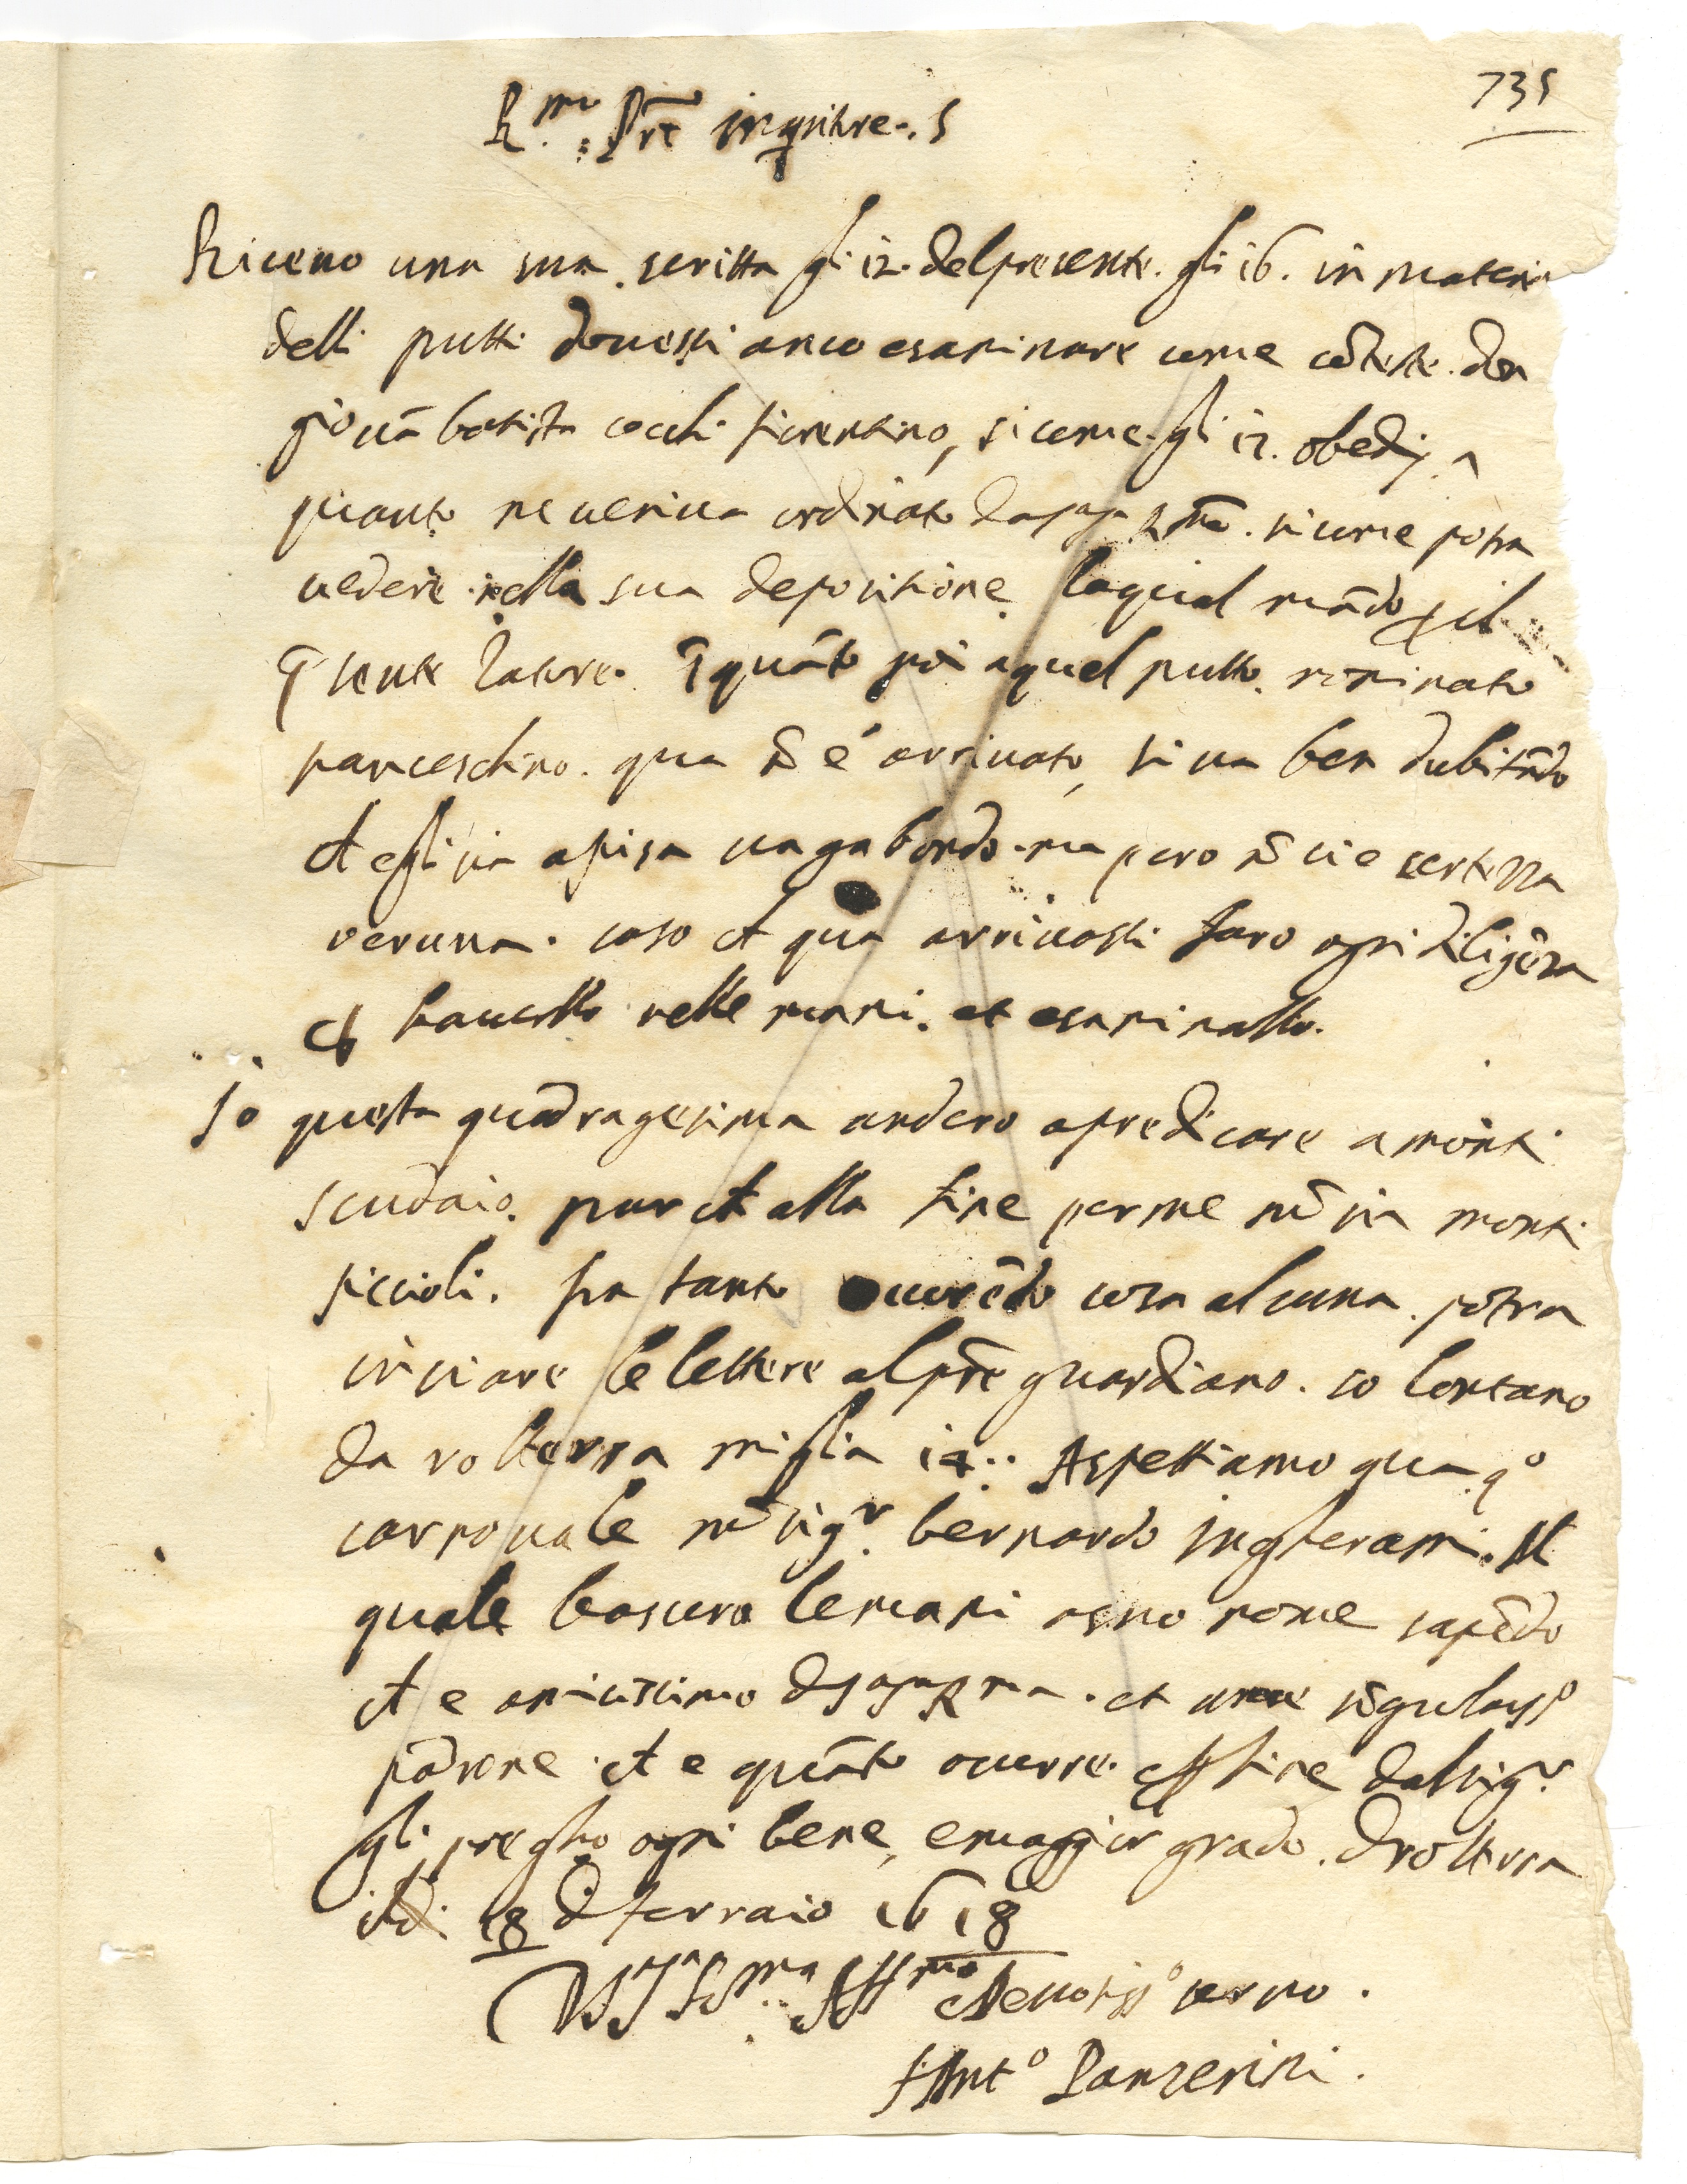 735
R.mo Pre inqsitore. S
Riceuo una sua. scritta gli 12. del presente. gli 16. in materia
delli putti douessi anco esaminare come cōteste. don
giouā batista cecchi fiorentino, si come. gli 17. obedij. a
quanto ne ueniua ordinato da
si come potra
uedere. nella sua depositione. la qual mādo p il
p̄sente latore. p̄ quāto poi a quel putto. nominato
franceschino. qua nō é arriuato, si ua ben dubitādo
ch egli sia a pisa uagabondo. ma pero nō ui e certezza
veruna. caso ch qua arriuassi faro ogni diligēza
di hauerllo nelle mani. et esaminallo.
Io questa quadragesima andero a predicare a monti
scudaio. pur ch alla fine per me nō sia monti
piccioli. fra tanto ocorēdo cosa alcuna. potra
inuiare le lettere al pre guardiano. so lontano
da volterra miglia 14.. Aspettiamo qua qo
carnouale mō sigr. bernardo ingherami. Il
quale bascera le mani a suo nome sapēdo
ch e amicissimo di
et
padrone. ch e quāto ocorre. Al fine dal sigr.
gli pregho ogni bene, e maggior grado. Di volterra
il di 18 di ferraio 1618
Deuotisso seruo.
f. Anto Panzerini.